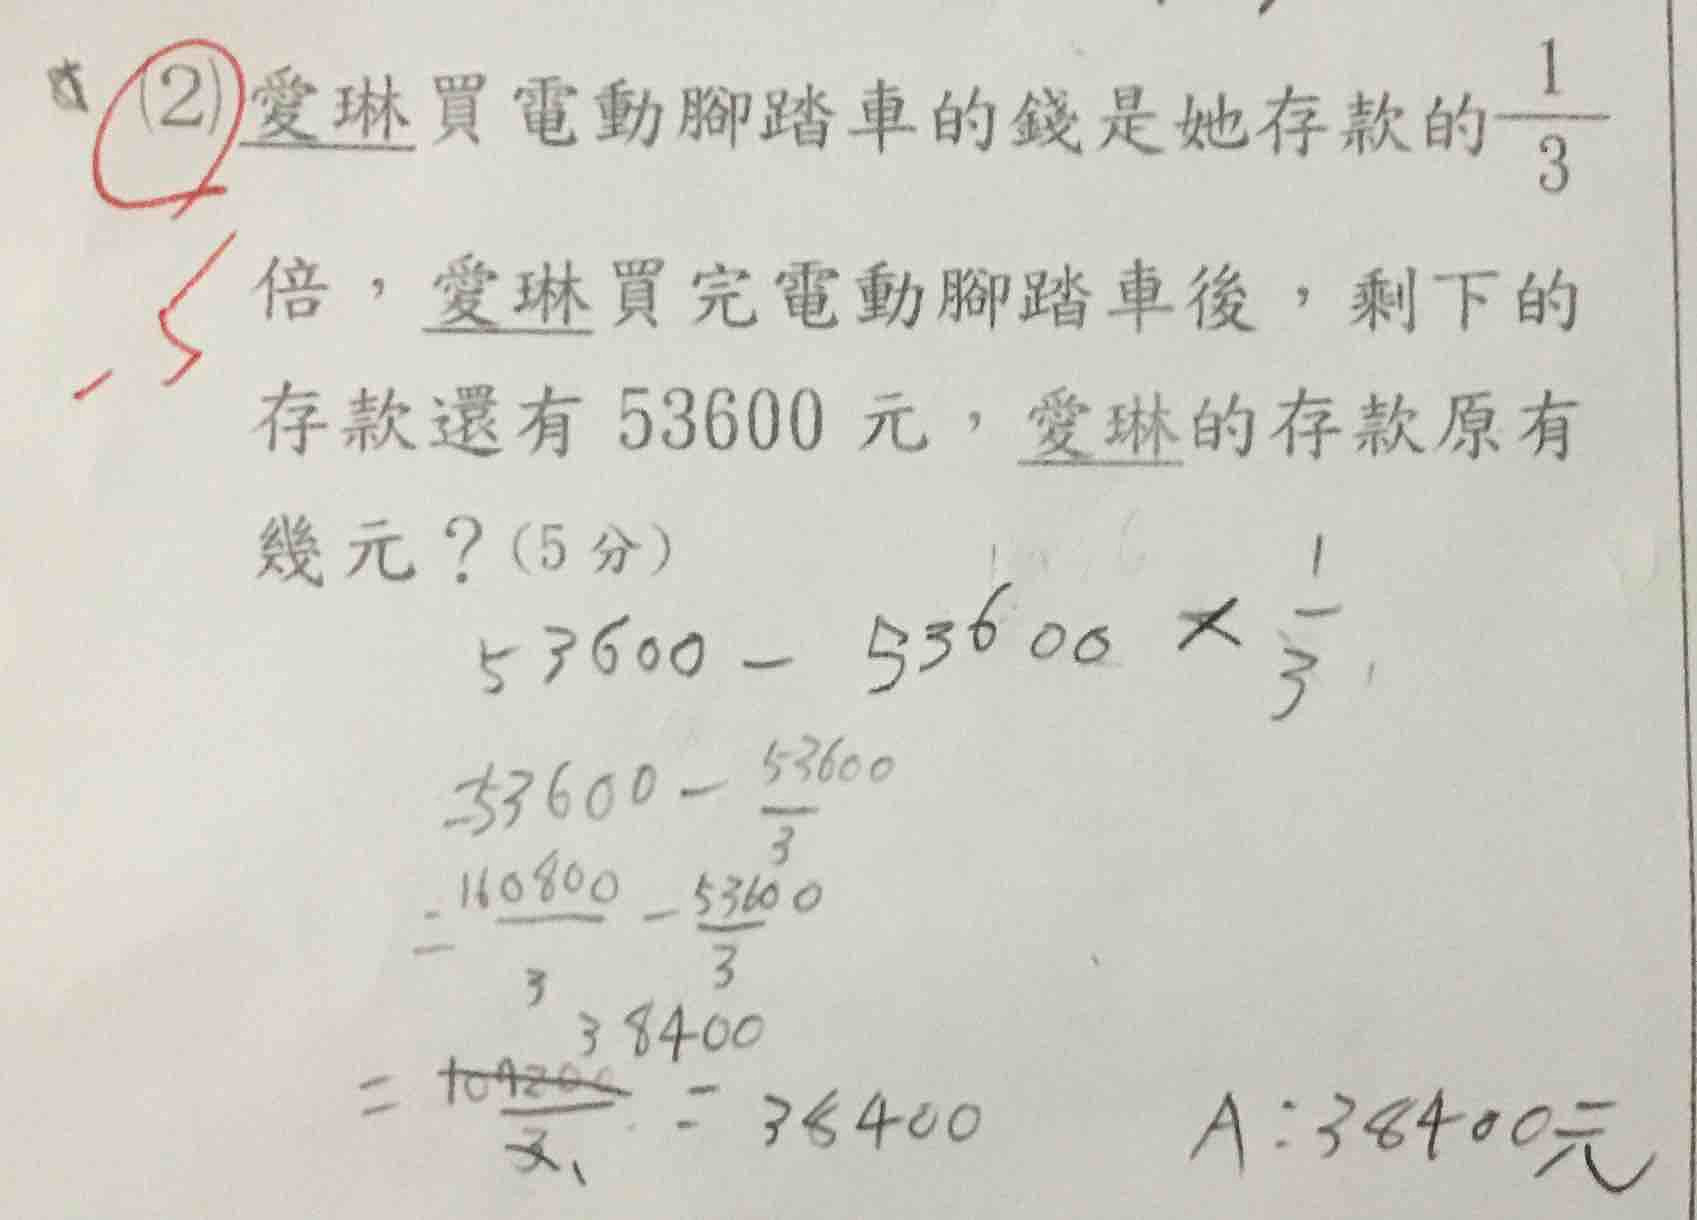 (2)愛琳買電動腳踏車的錢是她存款的1/3
倍,愛琳買完電動腳踏車後,剩下的
存款還有 53600 元,愛琳的存款原有
幾元?(5分)
53600 - 53600 × 1/3
=53600 - 53600/3
= 160800/3 - 53600/3
38400
= 109200/3 1 = 38400 A:38400元